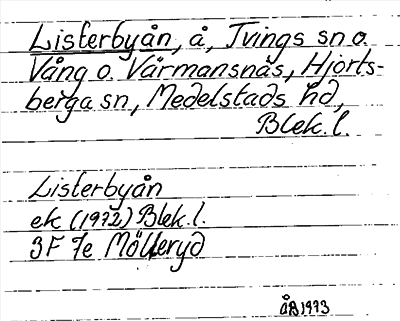 Listerbyån, å, Tvings sn o.
Vång o. Värmansnäs, Hjorts-
berga sn, Medelstads hd,
Blek. l.
Listerbyån
ek (1972) Blek. l.
3F 7e Mölleryd
ÅB 1973